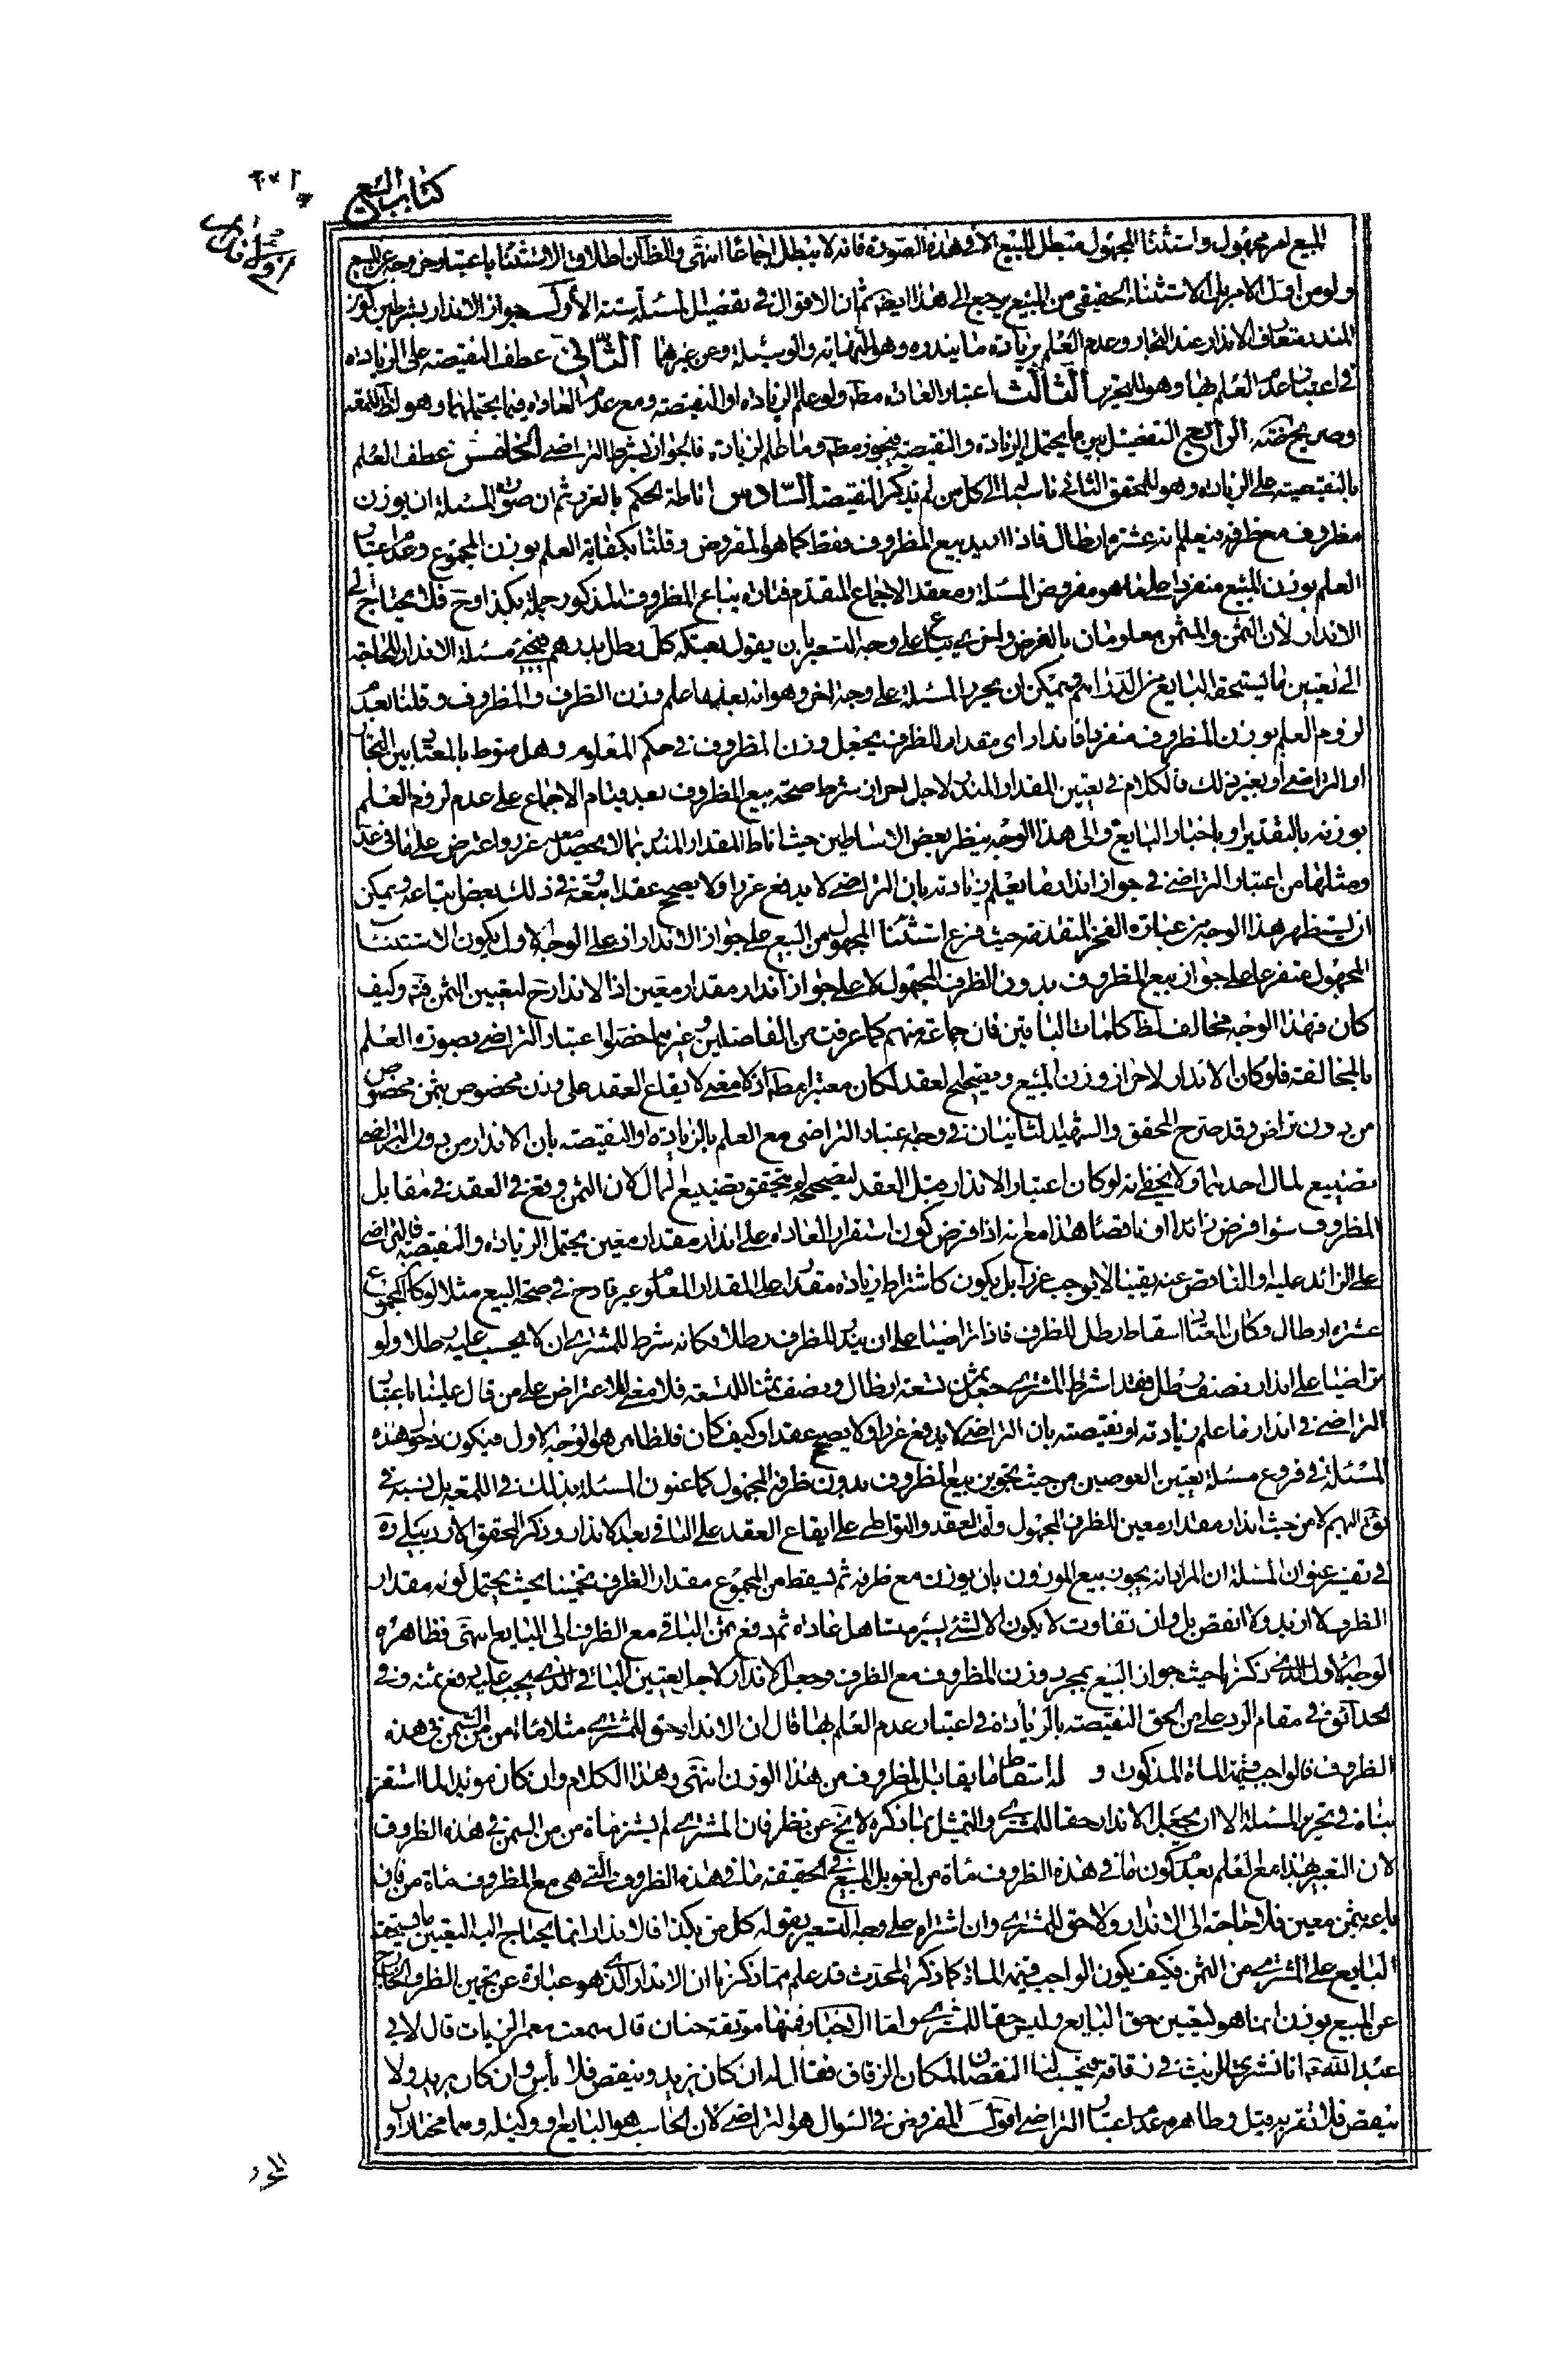 كتاب البيع
٢٠١
المبيع امر مجهول واستثناء المجهول مبطل للبيع الا في هذه الصورة فانه لا يبطل اجماعا انتهى والظ ان اطلاق الاستثناء باعتبار خروجه عن المبيع
ولو من اول الامر بل الاستثناء الحقيقي من المبيع يرجع الى هذا ايضه ثم ان الاقوال في تفصيل المسئلة ستة الأول جواز الاندار بشرطين كون
المندر متعارف الاندار عند التجار وعدم العلم بزيادة ما يندره وهو للنهاية والوسيلة وعن غيرهما الثاني عطف النقيصة على الزيادة
في اعتبار عدم العلم بها وهو للتحرير الثالث اعتبار العادة مطه ولو علم الزيادة او النقيصة ومع عدم العادة فيما يحتملهما وهو لظ اللمعة
وصريح الرابع التفصيل بين ما يحتمل الزيادة والنقيصة فيجوز مطه وما علم الزيادة فالجواز بشرط التراضي الخامس عطف العلم
بالنقيصة على الزيادة وهو للمحقق الثاني ناسبا له الى كل من لم يذكر النقيصة السادس اناطة الحكم بالغرر ثم ان صورة المسئلة ان يوزن
مظروف مع ظرفه فيعلم انه عشرة ارطال فاذا اريد بيع المظروف فقط كما هو المفروض وقلنا بكفاية العلم بوزن المجموع وعدم اعتبار
العلم بوزن المبيع منفردا على ما هو مفروض المسئلة ومعقد الاجماع المتقدم فتارة يباع المظروف المذكور جملة بكذا وح فلا يحتاج الى
الاندار لأن الثمن والمثمن معلومان بالفرض واخرى يباع على وجه التسعير بان يقول بعتكه كل رطل بدرهم فيجئ مسئلة الاندار للحاجة
الى تعيين ما يستحقه البايع من الدراهم ويمكن ان يحرر المسئلة على وجه اخر وهو انه بعد ما علم وزن الظرف والمظروف وقلنا بعدم
لزوم العلم بوزن المظروف منفردا فاندار اى مقدار للظرف يجعل وزن المظروف في حكم المعلوم وهل هو منوط بالمعتاد بين التجار
او التراضي او بغير ذلك فالكلام في تعيين المقدار المندر لاجل احراز شرط صحة بيع المظروف بعد قيام الاجماع على عدم لزوم العلم
بوزنه بالتقدير او باخبار البايع والى هذا الوجه ينظر بعض الاساطين حيث اناط المقدار المندر بما لا يحصل معه غرر واعترض على ما في عد
ومثلها من اعتبار التراضي في جواز اندار ما يعلم زيادته بان التراضي لا يدفع غررا ولا يصحح عقدا وتبعه في ذلك بعض اتباعه ويمكن
ان يستظهر هذا الوجه من عبارة الفخر المتقدمة حيث فرع استثناء المجهول من المبيع على جواز الاندار اذ على الوجه الاول يكون الاستثناء
المجهول متفرعا على جواز بيع المظروف بدون الظرف المجهول لا على جواز اندار مقدار معين اذ الاندار ح لتعيين الثمن فته وكيف
كان فهذا الوجه مخالف لظ كلمات الباقين فان جماعة منهم كما عرفت من الفاضلين وغيرهما خصوا اعتبار التراضي بصورة العلم
بالمخالفة فلو كان الاندار لاحراز وزن المبيع وتصحيح العقد لكان معتبرا مطه اذ لا معنى لايقاع العقد على وزن مخصوص بثمن مخصوص
من دون تراض وقد صرح المحقق والشهيد الثانيان في وجه اعتبار التراضي مع العلم بالزيادة او النقيصة بان الاندار من دون التراضي
تضييع لمال احدهما ولا يخفى انه لو كان اعتبار الاندار قبل العقد لتصحيحه لم يتحقق تضييع المال لان الثمن وقع في العقد في مقابل
المظروف سواء فرض زائدا او ناقصا هذا مع انه اذا فرض كون استقرار العادة على اندار مقدار معين يحتمل الزيادة والنقيصة فالتراضي
على الزائد عليه والناقص عنه يقينا لا يوجب غررا بل يكون كاشتراط زيادة مقدار على المقدار المعلوم غير قادح في صحة البيع مثلا لو كان المجموع
عشرة ارطال وكان المعتاد اسقاط رطل للظرف فاذا تراضيا على ان يندر للظرف رطلان فكانه شرط للمشتري ان لا يحسب عليه رطلا ولو
تراضيا على اندار نصف رطل فقد اشترط المشتري جعل ثمن تسعة ارطال ونصف ثمنا للتسعة فلا معنى للاعتراض على من قال باعتبار
التراضي في اندار ما علم زيادته او نقيصته بان التراضي لا يدفع غررا ولا يصحح عقدا وكيف كان فالظاهر هو الوجه الاول فيكون دخول هذه
المسئلة في فروع مسئلة تعيين العوضين من حيث تجويز بيع المظروف بدون ظرفه المجهول كما عنون المسئلة بذلك في اللمعة بل نسبه في
ئق اليهم لا من حيث اندار مقدار معين للظرف المجهول وقت العقد والتواطي على ايقاع العقد على الباقي بعد الاندار وذكر المحقق الاردبيلي ره
في تفسير عنوان المسئلة ان المراد انه يجوز بيع الموزون بان يوزن مع ظرفه ثم يسقط من المجموع مقدار الظرف تخمينا بحيث يحتمل كونه مقدار
الظرف لا ازيد ولا انقص بل وان تفاوت لا يكون الا لشئ يسير متساهل عادة ثم دفع ثمن الباقي مع الظرف الى البايع انتهى فظاهره
الوجه الاول الذي ذكرنا حيث جواز البيع بمجرد وزن المظروف مع الظرف وجعل الاندار لاجل تعيين الباقي الذي يجب عليه دفع ثمنه وفي
الحدائق في مقام الرد على من الحق النقيصة بالزيادة في اعتبار عدم العلم بها قال ان الاندار حق للمشتري مثلا مائة من من السمن في هذه
الظروف فالواجب قيمة المائة المذكورة و له اسقاط ما يقابل المظروف من هذا الوزن انتهى وهذا الكلام وان كان مؤيدا لما استقر
بناه في تحرير المسئلة الا ان جعل الاندار حقا للمشتري والتمثيل بما ذكره لا يخ عن نظر فان المشتري لم يشتر مائة من من السمن في هذه الظروف
لان التعبير بهذا مع العلم بعدم كون ما في هذه الظروف مائة من لغو بل المبيع في الحقيقة ما في هذه الظروف التي هي مع المظروف مائة من فان
باعه بثمن معين فلا حاجة الى الاندار ولا حق للمشتري وان اشتراه على وجه التسعير بقوله كل من بكذا فالاندار انما يحتاج اليه لتعيين ما يستحقه
البايع على المشتري من الثمن فكيف يكون الواجب قيمة المائة كما ذكره المحدث وقد علم مما ذكرنا ان الاندار الذي هو عبارة عن تخمين الظرف الخارج
عن المبيع بوزن انما هو لتعيين حق البايع وليس حقا للمشتري واما الاخبار فمنها موثقة حنان قال سمعت معمر الزيات قال لابي
عبد الله ع انا نشتري الزيت في زقاقه فيحسب لنا النقصان لمكان الزقاق فقال له ان كان يزيد وينقص فلا باس وان كان يزيد ولا
ينقص فلا تقربه قيل وظاهره عدم اعتبار التراضي اقول المفروض في السؤال هو التراضي لان الحاسب هو البايع او وكيله وهما مختاران و